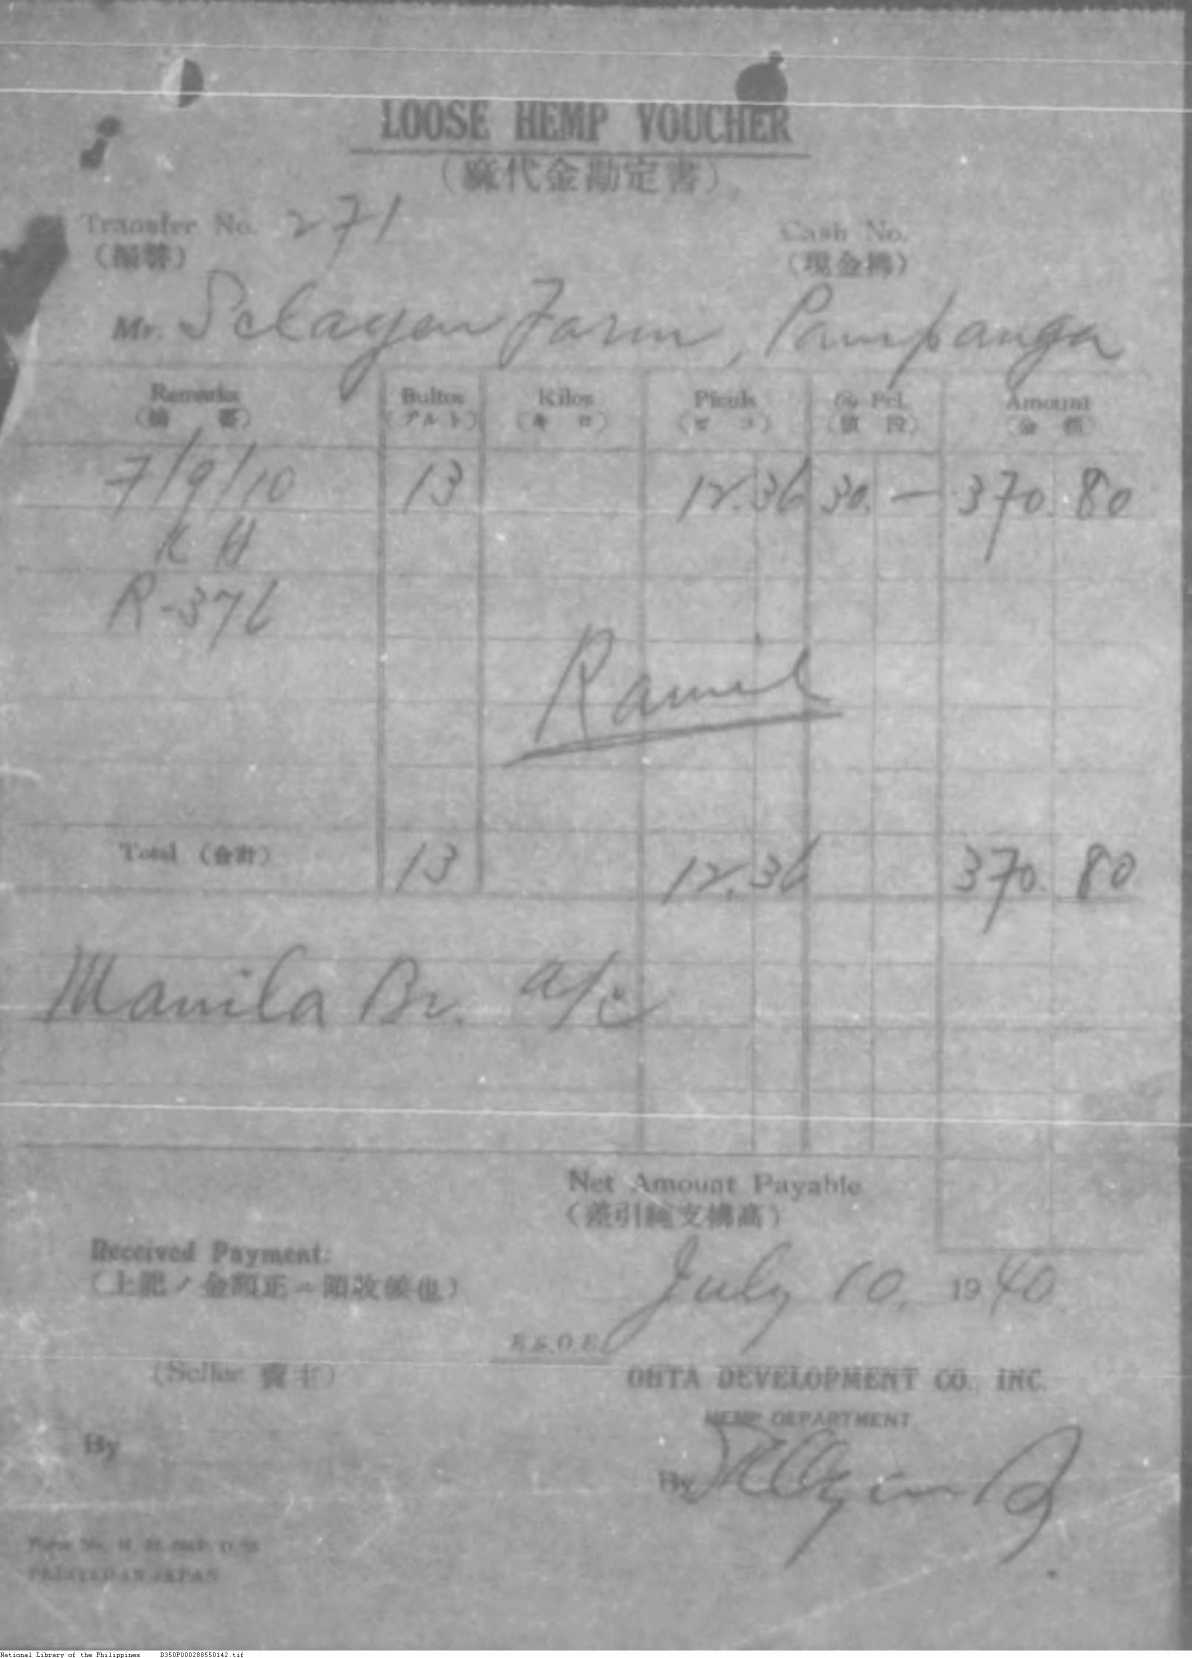 LOOSE HEMP VOUCHER
(麻代金勘定書)
Transfer No. 271
(振替)
Cash No.
(現金拂)
Mr. Selagen Farm, Pampanga
Remarks Bultos Kilos Piculs @ Pcl. Amount
(摘要) (ブルト) (キロ) (ピコ) (値段) (金額)
7/9/10 13 12.36 30. — 370. 80
K H
R-376
Ramil
Total (合計) 13 12.36 370. 80
Manila Br. a/c
Net Amount Payable
(差引純支拂高)
Received Payment:
(上記ノ金額正ニ領收候也)
July 10, 1940
E. & O. E.
(Seller 賣主)
OHTA DEVELOPMENT CO., INC.
HEMP DEPARTMENT
By
By
Form No. H.
PRINTED IN JAPAN
National Library of the Philippines D350P000288550142.tif